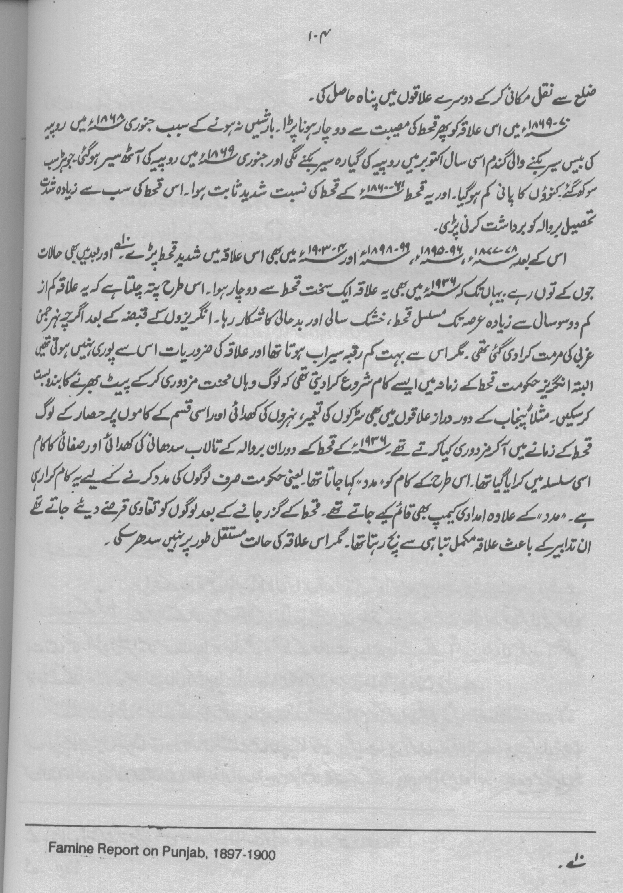 ۱۰۴
ضلع سے نقل مکانی کر کے دوسرے علاقوں میں پناہ حاصل کی۔
۷۰-۱۸۶۹ء میں اس علاقہ کو پھر قحط کی مصیبت سے دوچار ہونا پڑا۔ بارشیں نہ ہونے کے سبب جنوری ۱۸۶۸ء میں روپیہ
کی بیس سیر بکنے والی گندم اسی سال اکتوبر میں روپیہ کی گیارہ سیر بکنے لگی اور جنوری ۱۸۶۹ء میں روپیہ کی آٹھ سیر ہو گئی۔ جوہڑ سب
سوکھ گئے۔ کنوؤں کا پانی کم ہو گیا۔ اور یہ قحط ۶۱-۱۸۶۰ء کے قحط کی نسبت شدید ثابت ہوا۔ اس قحط کی سب سے زیادہ شدت
تحصیل بروالہ کو برداشت کرنی پڑی۔
اس کے بعد ۷۸-۱۸۷۷ء، ۹۶-۱۸۹۵ء، ۹۹-۱۸۹۸ء اور ۴-۱۹۰۳ء میں بھی اس علاقہ میں شدید قحط پڑے۔ ۱۰؎ اور بعد میں بھی حالات
جوں کے توں رہے، یہاں تک کہ ۱۹۳۶ء میں بھی یہ علاقہ ایک سخت قحط سے دوچار ہوا۔ اس طرح پتہ چلتا ہے کہ یہ علاقہ کم از
کم دو سو سال سے زیادہ عرصہ تک مسلسل قحط، خشک سالی اور بدحالی کا شکار رہا۔ انگریزوں کے قبضہ کے بعد اگرچہ نہر جمن
غربی کی مرمت کرا دی گئی تھی۔ مگر اس سے بہت کم رقبہ سیراب ہوتا تھا اور علاقہ کی ضروریات اس سے پوری نہیں ہوتی تھیں
البتہ انگریز حکومت قحط کے زمانہ میں ایسے کام شروع کرا دیتی تھی کہ لوگ وہاں محنت مزدوری کر کے پیٹ بھرنے کا بندوبست
کر سکیں۔ مثلاً پنجاب کے دور دراز علاقوں میں بھی سڑکوں کی تعمیر، نہروں کی کھدائی اور اسی قسم کے کاموں پر حصار کے لوگ
قحط کے زمانے میں آ کر مزدوری کیا کرتے تھے۔ ۱۹۳۶ء کے قحط کے دوران بروالہ کے تالاب سدھانی کی کھدائی اور صفائی کا کام
اسی سلسلہ میں کرایا گیا تھا۔ اس طرح کے کام کو "مدد" کہا جاتا تھا۔ یعنی حکومت صرف لوگوں کی مدد کرنے کے لیے یہ کام کرا رہی
ہے۔ "مدد" کے علاوہ امدادی کیمپ بھی قائم کیے جاتے تھے۔ قحط کے گزر جانے کے بعد لوگوں کو تقاوی قرضے دیئے جاتے تھے
ان تدابیر کے باعث علاقہ مکمل تباہی سے بچ رہتا تھا۔ مگر اس علاقہ کی حالت مستقل طور پر نہیں سدھر سکی۔
۱۰؎۔ Famine Report on Punjab, 1897-1900